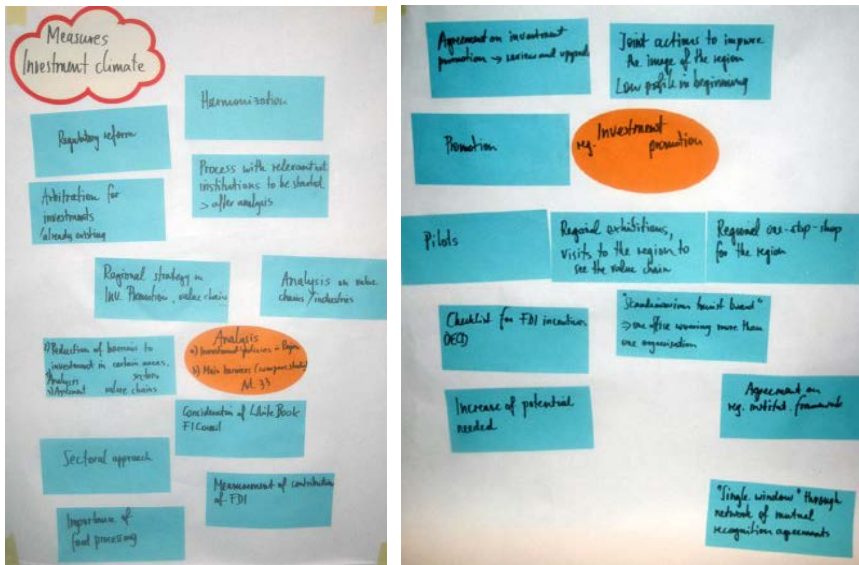 Measures
Investment climate
Harmonization
Regulatory reform
Process with relevant
institutions to be started
> after analysis
Arbitration for
investments
already existing
Regional strategy on
Inv. Promotion, value chain
Analysis on value
chains/industries
1) Reduction of barriers to
investment in certain areas,
sectors
Analysis
value chains
Analysis
a) Investment policies in Region
b) Main barriers
Art. 33
Consideration of White Book
FI Council
Sectoral approach
Measurement of contribution
of FDI
Importance of
food processing
Agreement on investment
promotion → review and upgrade
Joint actions to improve
the image of the region
Low profile in beginning
Promotion
Investment
reg. promotion
Pilots
Regional exhibitions,
visits to the region to
see the value chain
Regional one-stop-shop
for the region
Checklist for FDI incentives
OECD
"Scandinavian tourist board"
→ one office working more than
one organisation
Increase of potential
needed
Agreement on
reg. institut. framework
"Single window" through
network of mutual
recognition agreements